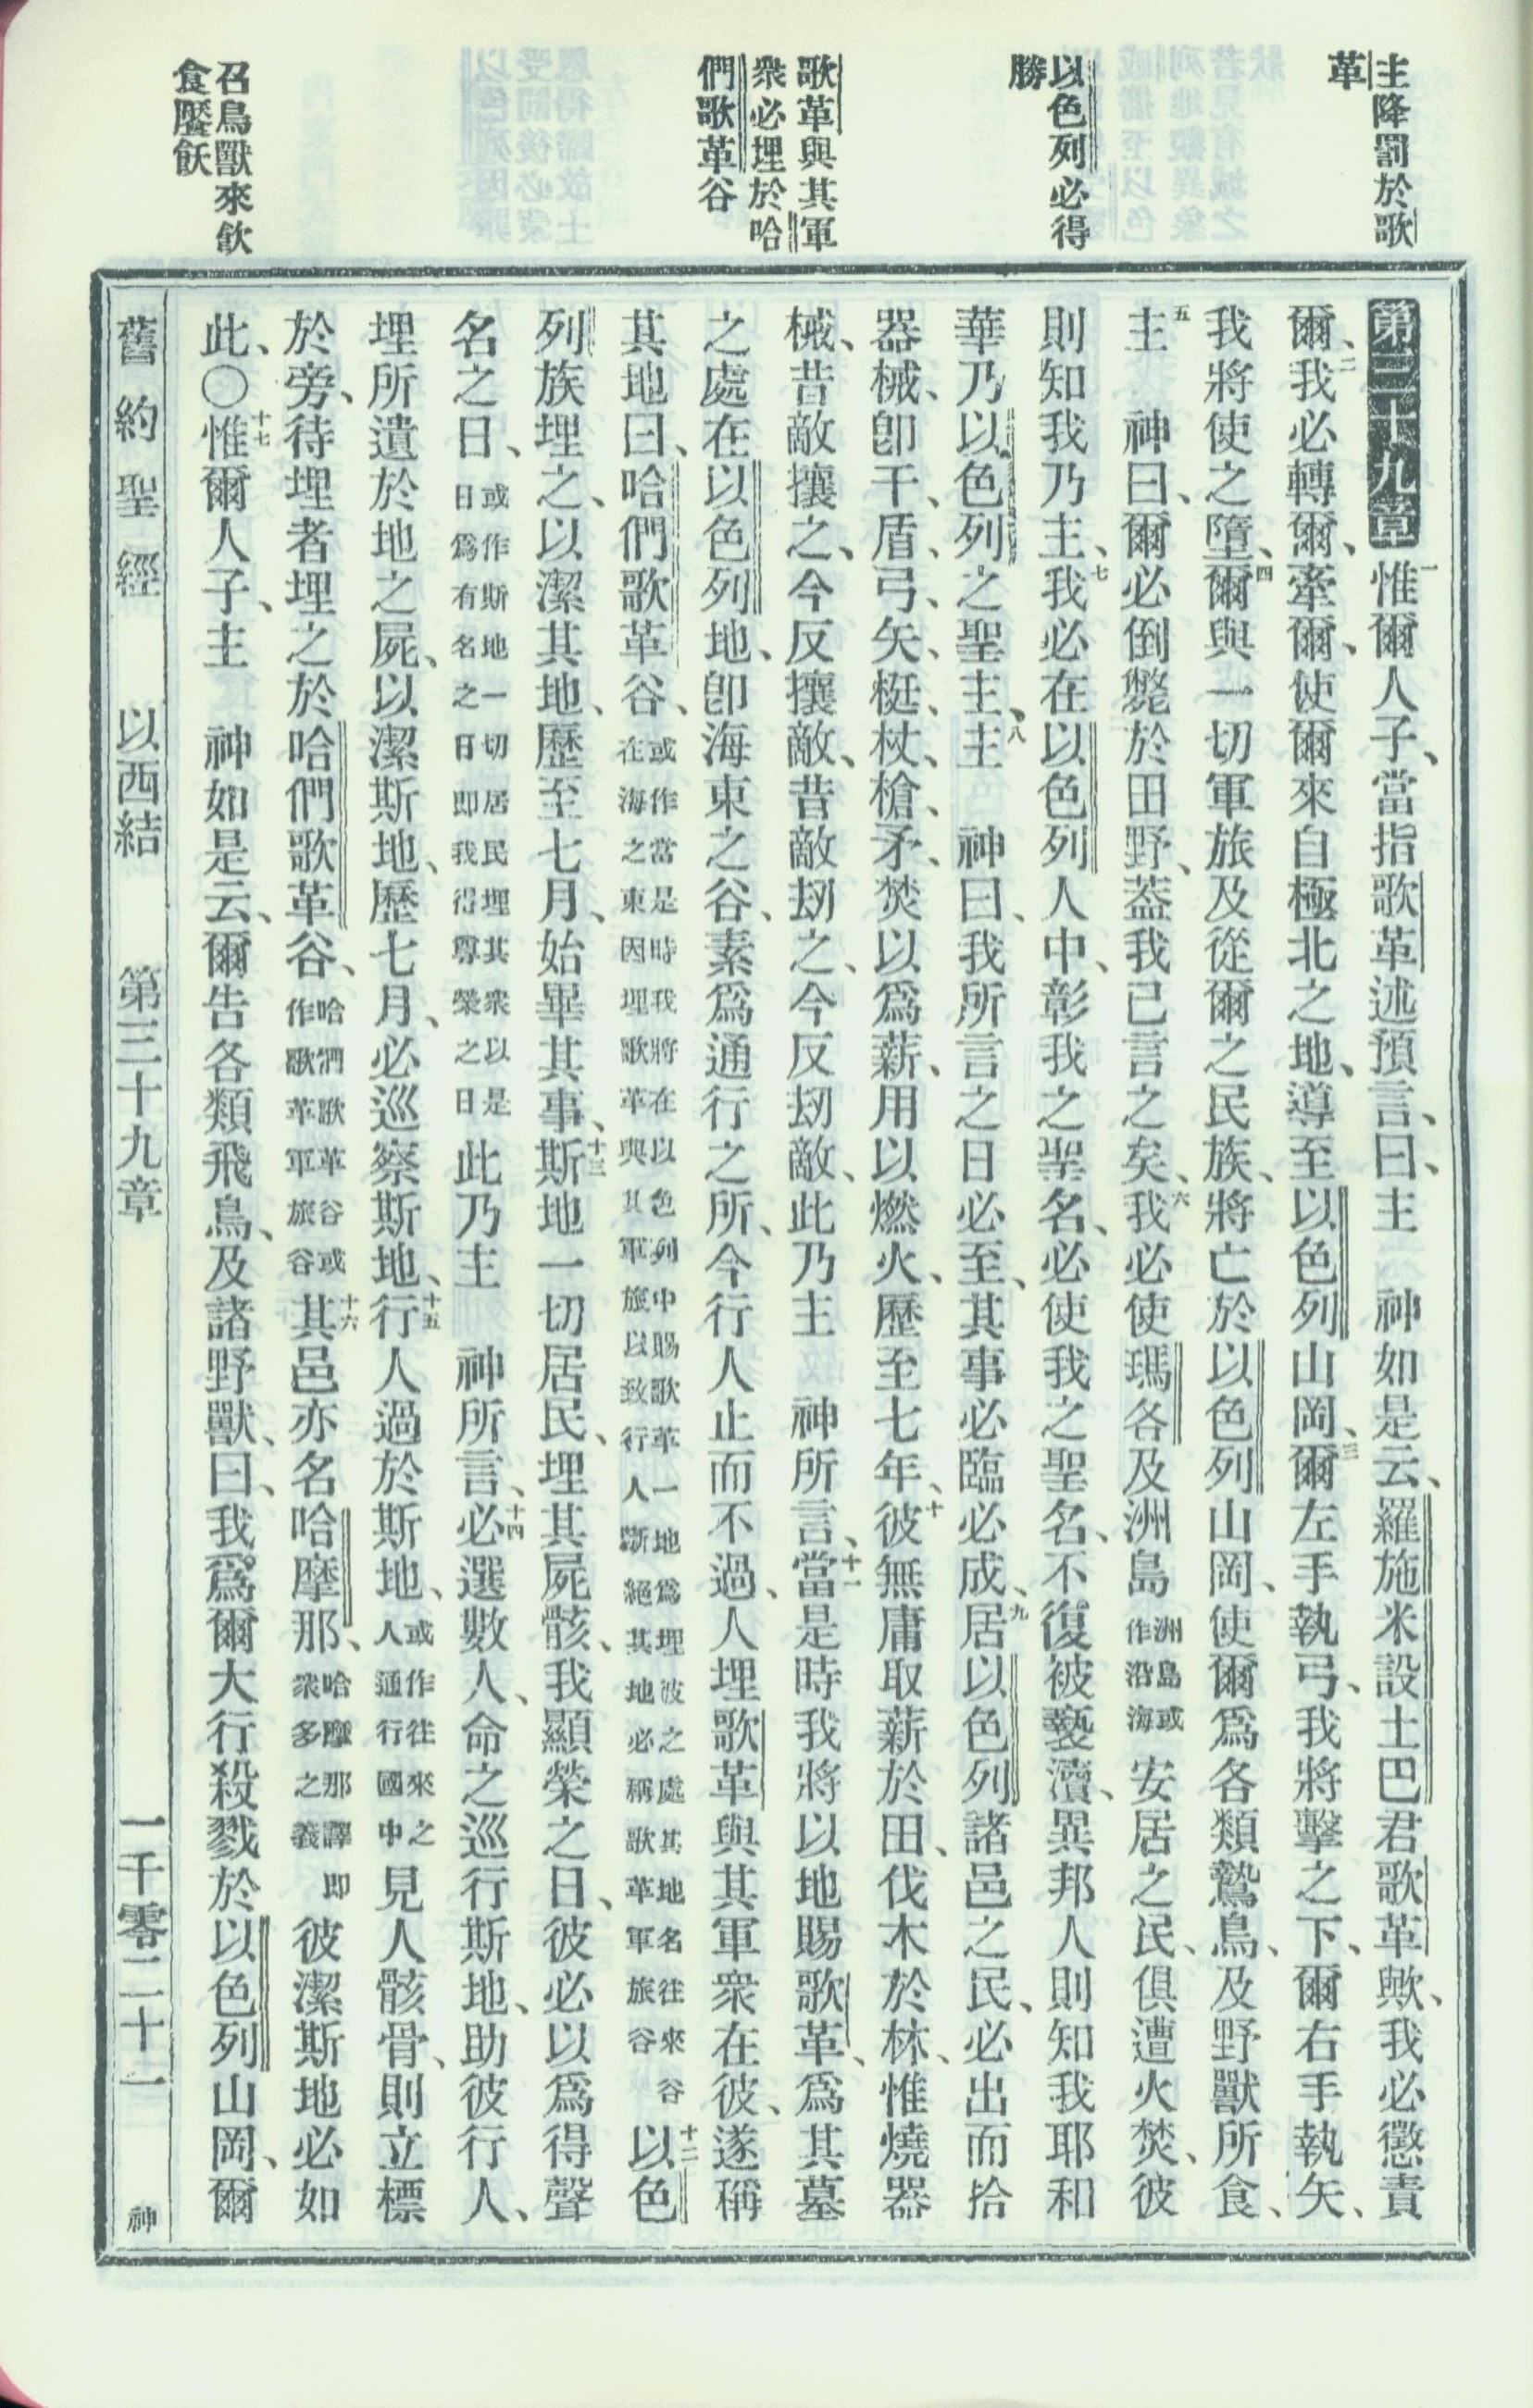 主降罰於歌
革
以色列必得
勝
歌革與其軍
衆必埋於哈
們歌革谷
召鳥獸來飲
食饜飫
第三十九章 一惟爾人子、當指歌革述預言、曰、主　神如是云、羅施米設土巴君歌革歟、我必懲責
爾、二我必轉爾、牽爾、使爾來自極北之地、導至以色列山岡、三爾左手執弓、我將擊之下、爾右手執矢、
我將使之墮、四爾與一切軍旅及從爾之民族、將亡於以色列山岡、使爾爲各類鷙鳥、及野獸所食、
五主　神曰、爾必倒斃於田野、蓋我已言之矣、六我必使瑪各及洲島洲島或作沿海安居之民、俱遭火焚、彼
則知我乃主、七我必在以色列人中、彰我之聖名、必使我之聖名、不復被褻瀆、異邦人則知我耶和
華乃以色列之聖主、八主　神曰、我所言之日必至、其事必臨必成、九居以色列諸邑之民、必出而拾
器械、卽干、盾、弓、矢、梃、杖、槍、矛、焚以爲薪、用以燃火、歷至七年、十彼無庸取薪於田、伐木於林、惟燒器
械、昔敵攘之、今反攘敵、昔敵刼之、今反刼敵、此乃主　神所言、十一當是時我將以地賜歌革、爲其墓
之處在以色列地、卽海東之谷、素爲通行之所、今行人止而不過、人埋歌革與其軍衆在彼、遂稱
其地曰、哈們歌革谷、或作當是時我將在以色列中賜歌革一地爲埋彼之處其地名往來谷在海之東因埋歌革與其軍旅以致行人斷絕其地必稱歌革軍旅谷十二以色
列族埋之、以潔其地、歷至七月、始畢其事、十三斯地一切居民、埋其屍骸、我顯榮之日、彼必以爲得聲
名之日、或作斯地一切居民埋其衆以是日爲有名之日卽我得尊榮之日此乃主　神所言、十四必選數人、命之巡行斯地、助彼行人、
埋所遺於地之屍、以潔斯地、歷七月、必巡察斯地、十五行人過於斯地、或作往來之人通行國中見人骸骨、則立標
於旁、待埋者埋之於哈們歌革谷、哈們歌革谷或作歌革軍旅谷十六其邑亦名哈摩那、哈摩那譯卽衆多之義彼潔斯地必如
此、〇十七惟爾人子、主　神如是云、爾告各類飛鳥、及諸野獸、曰、我爲爾大行殺戮於以色列山岡、爾
舊約聖經　以西結　第三十九章　一千零二十一　神